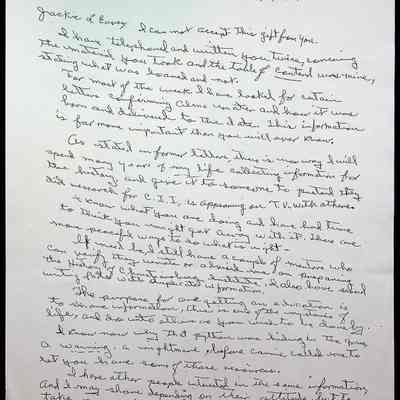 Jackie & Corey I can not accept this gift from you.
I have telephoned and written you twice, concerning
the material you took and the table of content was mine,
stating what was loaned and not.
For most of the week I have looked for certain
letters confirming and how it was
born and delivered to this date. This information
is far more important than you will ever know.
As stated in former letters, there is no way I will
spend many years of my life collecting information for
the history and give it to someone to pretend they
did research for C.I.I. is appearing on T.V. with others.
I know what you are doing and have had time
to think you might get away with it. There are
more peaceful ways to do what is right.
It must be I still have a couple of mentors who
can verify they on preparing
the History of Institute. I also have asked
with duplicated information.
The purpose for one getting an education is
to share information, this is one of the mysteries of
life, and do unto others as you wish to be done by.
I know now why that python was hiding in the
a warning. a nightmare, before Carrie called me to
let you have some of those resources.
I have other people interested in the same information,
and I may share depending on their attitude but to
take